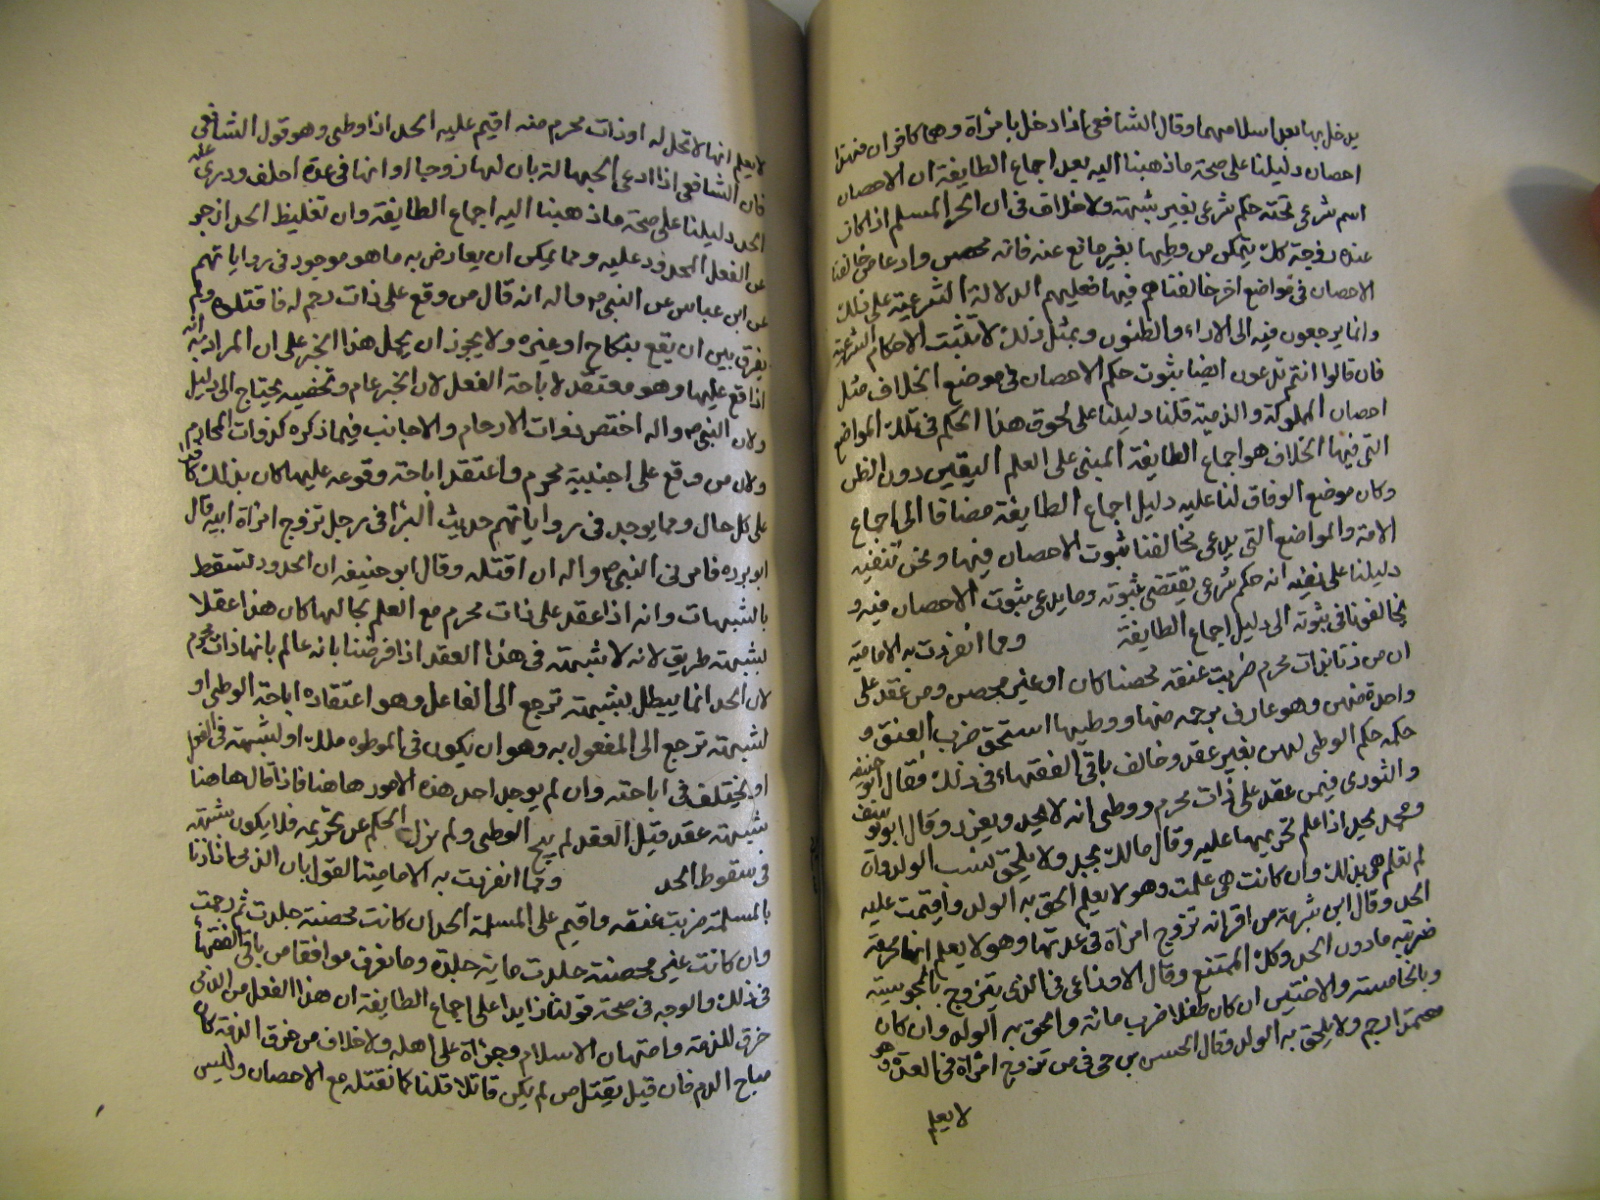 يدخل بها بعد اسلامهما وقال الشافعي اذا دخل بامرأة وهما كافران فهذا
احصان دليلنا على صحة ما ذهبنا اليه بعد اجماع الطايفة ان الاحصان
اسم شرعي تحته حكم شرعي بغير شبهة ولا خلاف في ان الحر المسلم اذا كان
عنده زوجة كك يتمكن من وطيها بغير مانع عنه فانه محصن وادعا من خالفنا
الاحصان في مواضع اخر خالفناهم فيها فعليهم الدلالة الشرعية على ذلك
وانما يرجعون فيه الى الاراء والظنون وبمثل ذلك لا تثبت الاحكام الشرعية
فان قالوا انتم تدعون ايضا بثبوت حكم الاحصان في موضع الخلاف مثل
احصان المملوكة والذمية قلنا دليلنا على لحوق هذا الحكم في تلك المواضع
التي فيها الخلاف هو اجماع الطايفة المبني على العلم اليقين دون الظن
وكان موضع الوفاق لنا عليه دليل اجماع الطايفة مضافا الى اجماع
الامة والمواضع التي يدعي مخالفنا ثبوت الاحصان فيها ونحن ننفيه
دليلنا على نفيه انه حكم شرعي يقتضي ثبوته وما يدعى ثبوت الاحصان فيه و
يخالفونا في ثبوته الى دليل اجماع الطايفة ومما انفردت به الامامية
ان من زنا بذات محرم ضربت عنقه محصنا كان او غير محصن ومن عقد على
واحدة منهن وهو عارف برحمه منها ووطيها استحق ضرب العنق و
حكمه حكم الوطي لهن بغير عقد وخالف باقي الفقهاء في ذلك فقال ابو حنيفه
والثوري فيمن عقد على ذات محرم ووطى انه لا يحد ويعزر وقال ابو يوسف
ومحمد يحد اذا علم تحريمها عليه وقال مالك يحد ولا يلحق نسب الولد وان
لم تعلم هي بذلك وان كانت هي علمت وهو لا يعلم الحق به الولد واقيمت عليه
الحد وقال ابن شبرمة من اقر انه تزوج امرأة في عدتها وهو لا يعلم انها محرمة
ضربته ما دون الحد وكك المتمتع وقال الاوزاعي في الذي يتزوج بالمجوسية
وبالخامسة والاختين ان كان جاهلا ضرب مائة والحق به الولد وان كان
متعمدا رجم ولا يلحق به الولد وقال الحسن بن حي في من تزوج امرأة في العدة وهو
لا يعلم
لا يعلم انها لا تحل له او ذات محرم منه اقيم عليه الحد اذا وطى وهو قول الشافعي
فان الشافعي اذا ادعى الجهالة بان لها زوجا او انها في عدة احلف ودرى عنه
الحد دليلنا على صحة ما ذهبنا اليه اجماع الطايفة وان تغليظ الحد ازجر
عن الفعل المحدود عليه ومما يمكن ان يعارض به ما هو موجود في رواياتهم
عن ابن عباس عن النبي ص واله انه قال من وقع على ذات رحم له فاقتلوه ولم
يفرق بين ان يقع بنكاح او غيره ولا يجوز ان يحمل هذا الخبر على ان المراد به انه
اذا وقع عليها وهو معتقد لاباحة الفعل لان الخبر عام وتخصيصه يحتاج الى دليل
ولان النبي ص واله اختص ذوات الارحام والاجانب فيما ذكره كذوات المحارم
ولان من وقع على اجنبية محرم واعتقد اباحة وقوعه عليها كان بذلك كافرا
على كل حال ومما يوجد في رواياتهم حديث البرا في رجل تزوج امرأة ابيه قال
ابو برده فامرني النبي ص واله ان اقتله وقال ابو حنيفه ان الحدود تسقط
بالشبهات وانه اذا عقد على ذات محرم مع العلم بحالها كان هذا عقلا
لشبهة طريق لانه لا شبهة في هذا العقد اذا فرضنا بانه عالم بانها ذات محرم
لان الحد انما يبطل بشبهة ترجع الى الفاعل وهو اعتقاده اباحة الوطي او
لشبهة ترجع الى المفعول به وهو ان يكون في الموطوه ملك او لشبهة في الفعل
او يختلف في اباحته وان لم يوجد احد هذه الامور هاهنا فاذا قال هاهنا
شبهة عقد قيل العقد لم يبح الوطي ولم يزل الحكم عن تحريمه فلا يكون شبهة
في سقوط الحد ومما انفردت به الامامية القول بان الذمي اذا زنا
بالمسلمة ضربت عنقه واقيم على المسلمة الحد ان كانت محصنة جلدت ثم رجمت
وان كانت غير محصنة جلدت ماية جلدة وما نعرف موافقا من باقي الفقهاء
في ذلك والوجه في صحة قولنا زايدا على اجماع الطايفة ان هذا الفعل من الذمي
خرق للذمة وامتهان الاسلام وجرأة على اهله ولا خلاف من خرق الذمة كان
مباح الدم فان قيل يقتل من لم يكن قاتلا قلنا كما نقتله مع الاحصان وليس